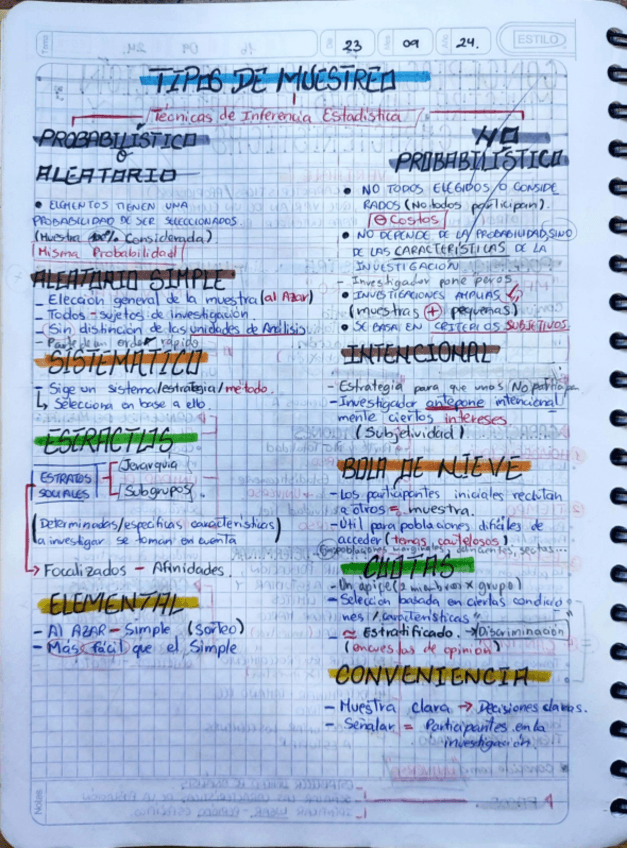 23 09 24.
ESTILO
TIPOS DE MUESTREO
Técnicas de Inferencia Estadística
PROBABILÍSTICO
O
ALEATORIO
• ELEMENTOS TIENEN UNA
PROBABILIDAD DE SER SELECCIONADOS.
(Muestra 100% Considerada)
Misma Probabilidad
ALEATORIO SIMPLE
- Elección general de la muestra (al Azar)
- Todos - sujetos de investigación.
- (Sin distinción de las unidades de Análisis
- Parte de un orden rápido
SISTEMÁTICO
- Sige un sistema/estrategia/método.
↳ Selecciona en base a ello
ESTRACTOS
ESTRATOS SOCIALES
Jerarquía
Subgrupos.
(Determinadas/específicas características)
a investigar se toman en cuenta
→ Focalizados - Afinidades.
ELEMENTAL
- Al AZAR - Simple (Sorteo)
- Más fácil que el Simple
NO
PROBABILÍSTICO
• NO TODOS ELEGIDOS/O CONSIDE
RADOS (No todos participan).
⊖ Costos
• NO DEPENDE DE LA PROBABILIDAD, SINO
DE LAS CARACTERÍSTICAS DE LA
INVESTIGACIÓN
- Investigador pone peros.
• INVESTIGACIONES AMPLIAS
(muestras + pequeñas)
• SE BASA EN CRITERIOS SUBJETIVOS.
INTENCIONAL
- Estrategia para que unos NO
- Investigador antepone intencional
mente ciertos intereses.
(Subjetividad)
BOLA DE NIEVE
- Los participantes iniciales reclutan
a otros = muestra.
- Útil para poblaciones difíciles de
acceder (temas cautelosos)
poblaciones marginales, delincuentes, sectas...
CUOTAS
- Un apice (2 miembros x grupo)
- Selección basada en ciertas condicio
nes / características
- ≈ Estratificado. → Discriminación
(encuestas de opinión)
CONVENIENCIA
- Muestra clara → Decisiones claras.
- Señalar = Participantes en la
investigación.
Notas